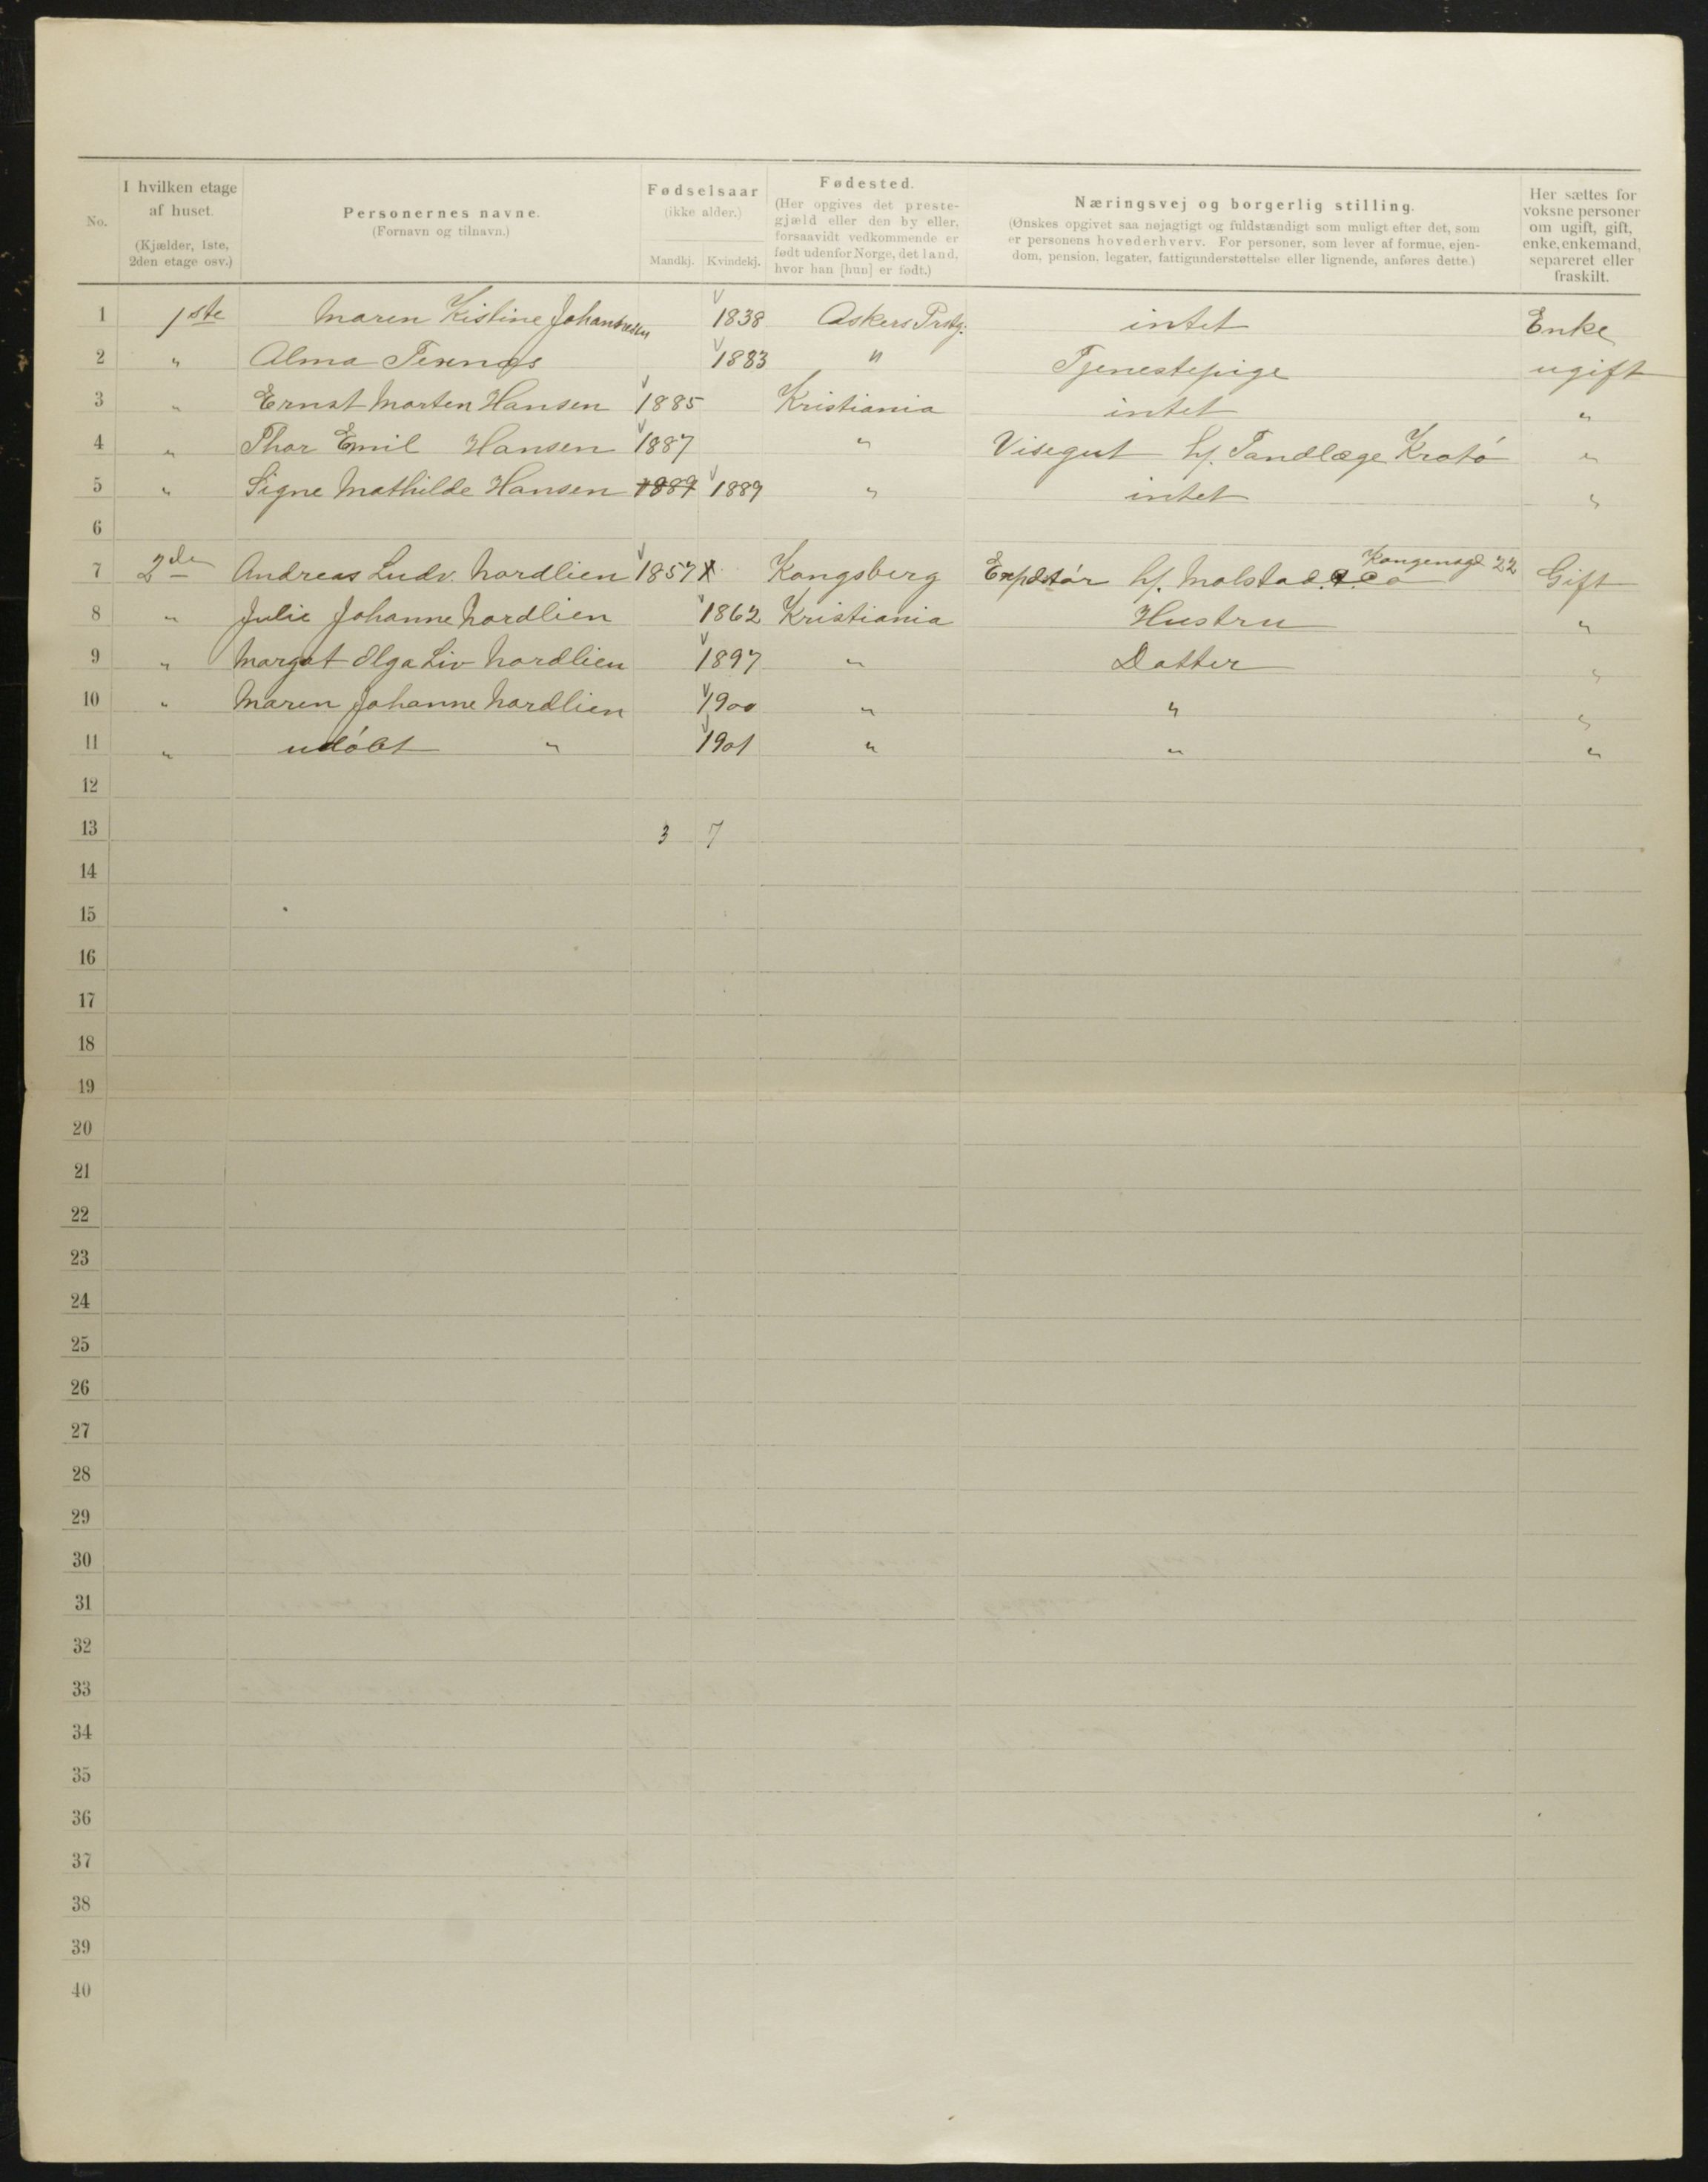 No.
I hvilken etage af huset. (Kjælder, 1ste, 2den etage osv.)
Personernes navne. (Fornavn og tilnavn.)
Fødselsaar (ikke alder.) Mandkj. Kvindekj.
Fødested. (Her opgives det prestegjæld eller den by eller, forsaavidt vedkommende er født udenfor Norge, det land, hvor han [hun] er født.)
Næringsvej og borgerlig stilling. (Ønskes opgivet saa nøjagtigt og fuldstændigt som muligt efter det, som er personens hovederhverv. For personer, som lever af formue, ejendom, pension, legater, fattigunderstøttelse eller lignende, anføres dette.)
Her sættes for voksne personer om ugift, gift, enke, enkemand, separeret eller fraskilt.
1 1ste Maren Kistine 1838 Askers Prstg. intet Enke
2 " Alma 1883 " Tjenestepige ugift
3 " Ernst Morten Hansen 1885 Kristiania intet "
4 " Thor Emil Hansen 1887 " Visegut h/. Tandlæge "
5 " Signe Mathilde Hansen 1889 1889 " intet "
6
7 2den Andreas Ludv. Nordlien 1857 Kongsberg Expdstør h/. Molstad & Co Kongensgd 22 Gift
8 " Julie Johanne Nordlien 1862 Kristiania Hustru "
9 " Margot Olga Liv Nordlien 1897 " Datter "
10 " Maren Johanne Nordlien 1900 " " "
11 " udøbt " 1901 " " "
12
13 3 7
14
15
16
17
18
19
20
21
22
23
24
25
26
27
28
29
30
31
32
33
34
35
36
37
38
39
40